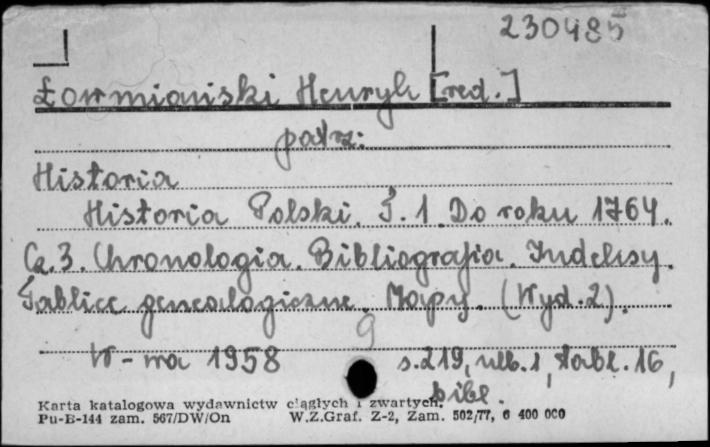 230485
Łowmiański Henryk [red.]
patrz:
Historia
Historia Polski. T. 1. Do roku 1764.
Cz. 3. Chronologia. Bibliografia. Indeksy.
Tablice genealogiczne. Mapy. (Wyd. 2).
9
W-wa 1958 s. 219, nlb. 1, tabl. 16,
bibl.
Karta katalogowa wydawnictw ciągłych i zwartych.
Pu-B-144 zam. 567/DW/On W.Z.Graf. Z-2, Zam. 502/77, 6 400 000